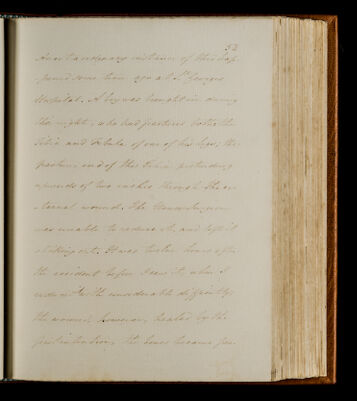 52
An extraordinary instance of this hap-
pened some time ago at St. Georges
Hospital. A boy was brought in during
the night, who had fractured both the
Tibia and Fibula of one of his legs; the
fractured end of the Tibia protruding
upwards of two inches through the ex-
ternal wound. The House Surgeon
was unable to reduce it, and left it
sticking out. It was twelve hours after
the accident before I saw it, when I
reduced it with considerable difficulty
the wound, however, healed by the
first intention, the bones became